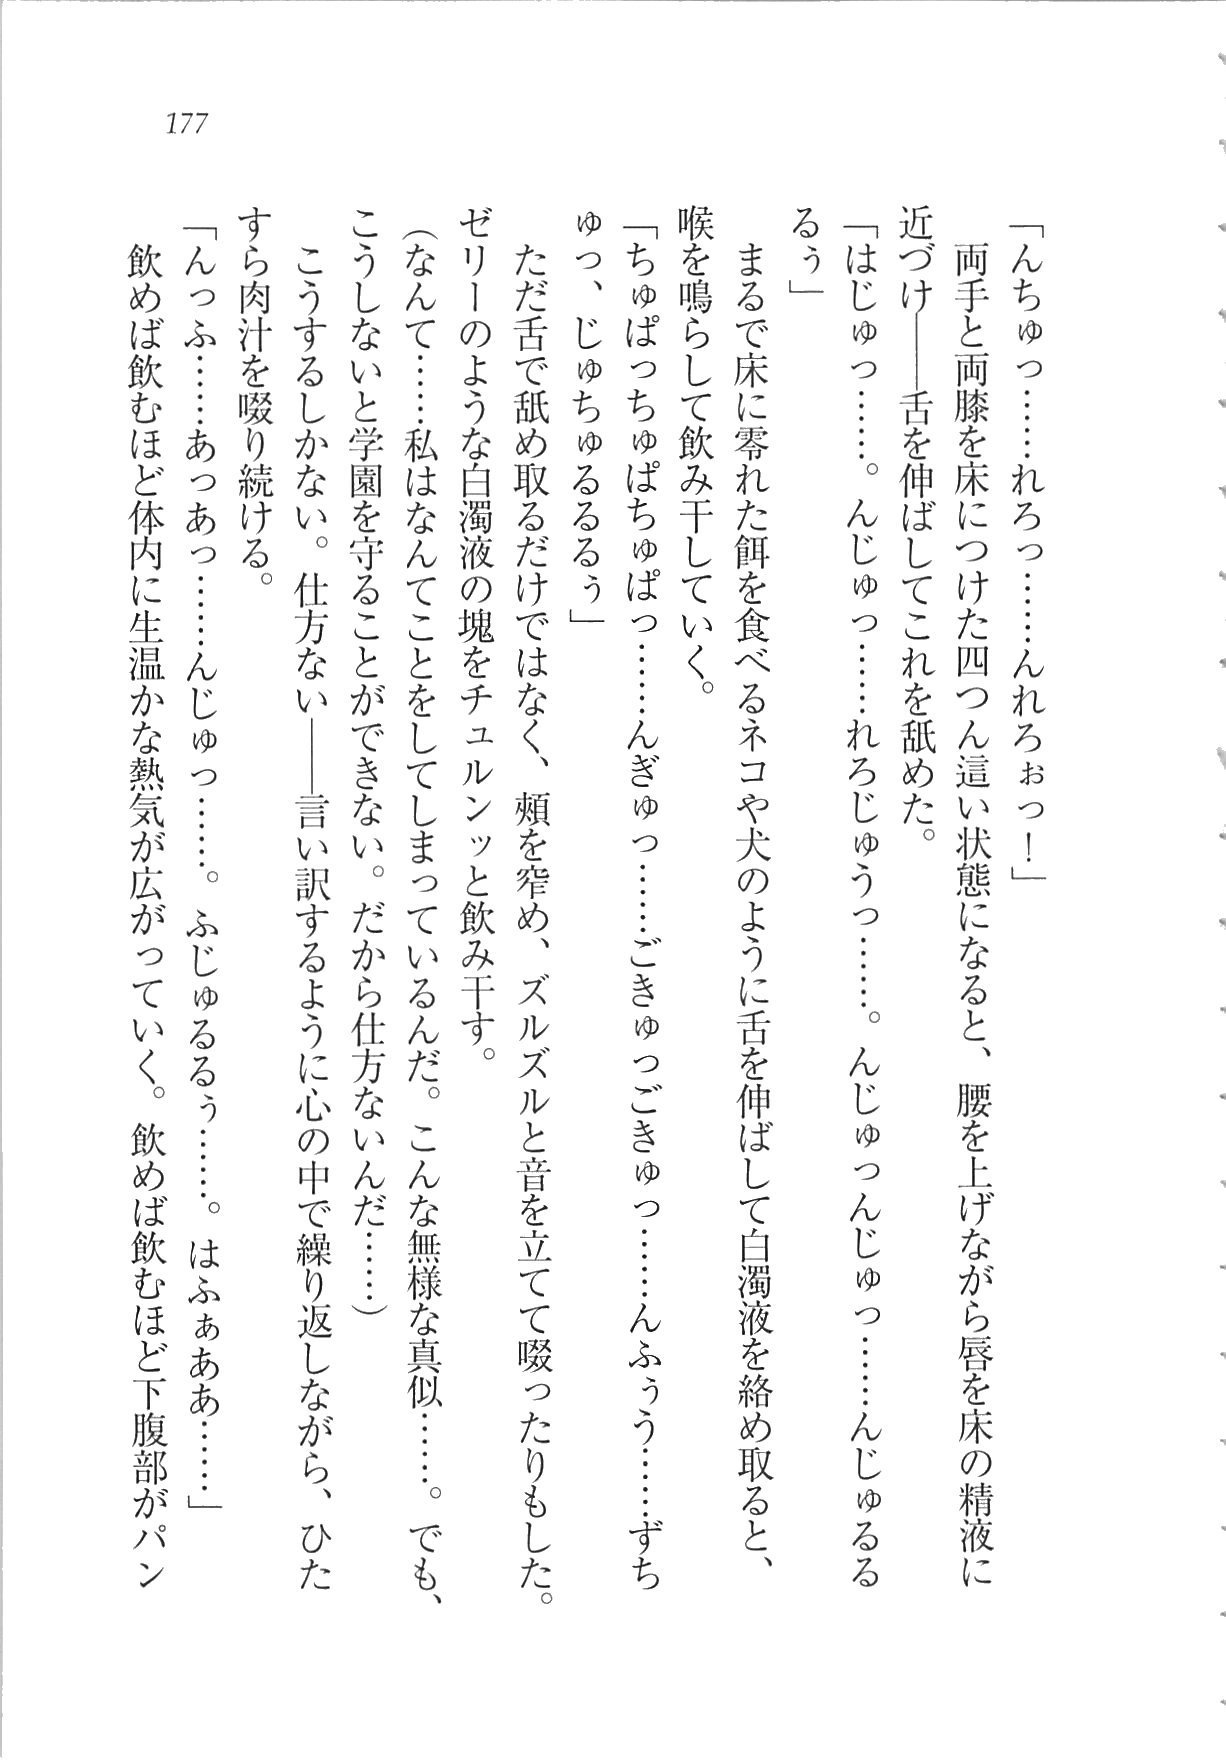 177
「んちゅっ……れろっ……んれろぉっ！」
両手と両膝を床につけた四つん這い状態になると、腰を上げながら唇を床の精液に
近づけ――舌を伸ばしてこれを舐めた。
「はじゅっ……。んじゅっ……れろじゅうっ……。んじゅっんじゅっ……んじゅるる
るぅ」
まるで床に零れた餌を食べるネコや犬のように舌を伸ばして白濁液を絡め取ると、
喉を鳴らして飲み干していく。
「ちゅぱっちゅぱちゅぱっ……んぎゅっ……ごきゅっごきゅっ……んふぅう……ずち
ゅっ、じゅちゅるるるぅ」
ただ舌で舐め取るだけではなく、頰を窄め、ズルズルと音を立てて啜ったりもした。
ゼリーのような白濁液の塊をチュルンッと飲み干す。
（なんて……私はなんてことをしてしまっているんだ。こんな無様な真似……。でも、
こうしないと学園を守ることができない。だから仕方ないんだ……）
こうするしかない。仕方ない――言い訳するように心の中で繰り返しながら、ひた
すら肉汁を啜り続ける。
「んっふ……あっあっ……んじゅっ……。ふじゅるるぅ……。はふぁああ……」
飲めば飲むほど体内に生温かな熱気が広がっていく。飲めば飲むほど下腹部がパン